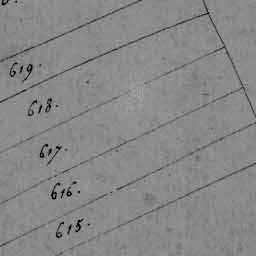 619.
618.
617.
616.
615.